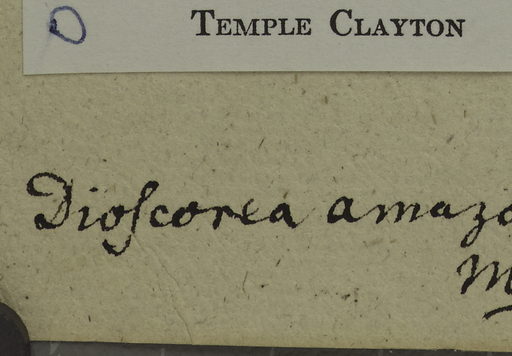 TEMPLE CLAYTON
Dioſcorea amazo
M